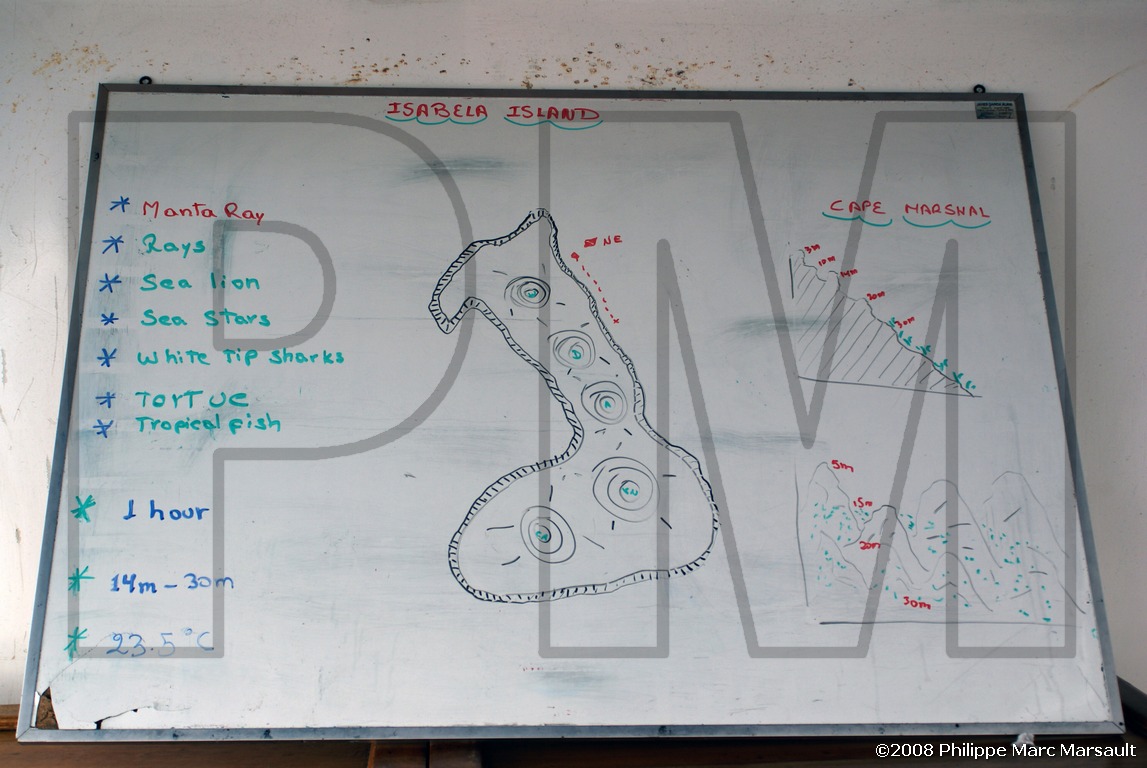 ISABELA ISLAND
* Manta Ray
* Rays
* Sea lion
* Sea Stars
* White Tip Sharks
* TORTUE
* Tropical fish
* 1 hour
* 14m - 30m
* 23.5°C
NE
D
A
CAPE MARSHAL
3m
10m
14m
20m
30m
5m
15m
20m
30m
PIM
©2008 Philippe Marc Marsault